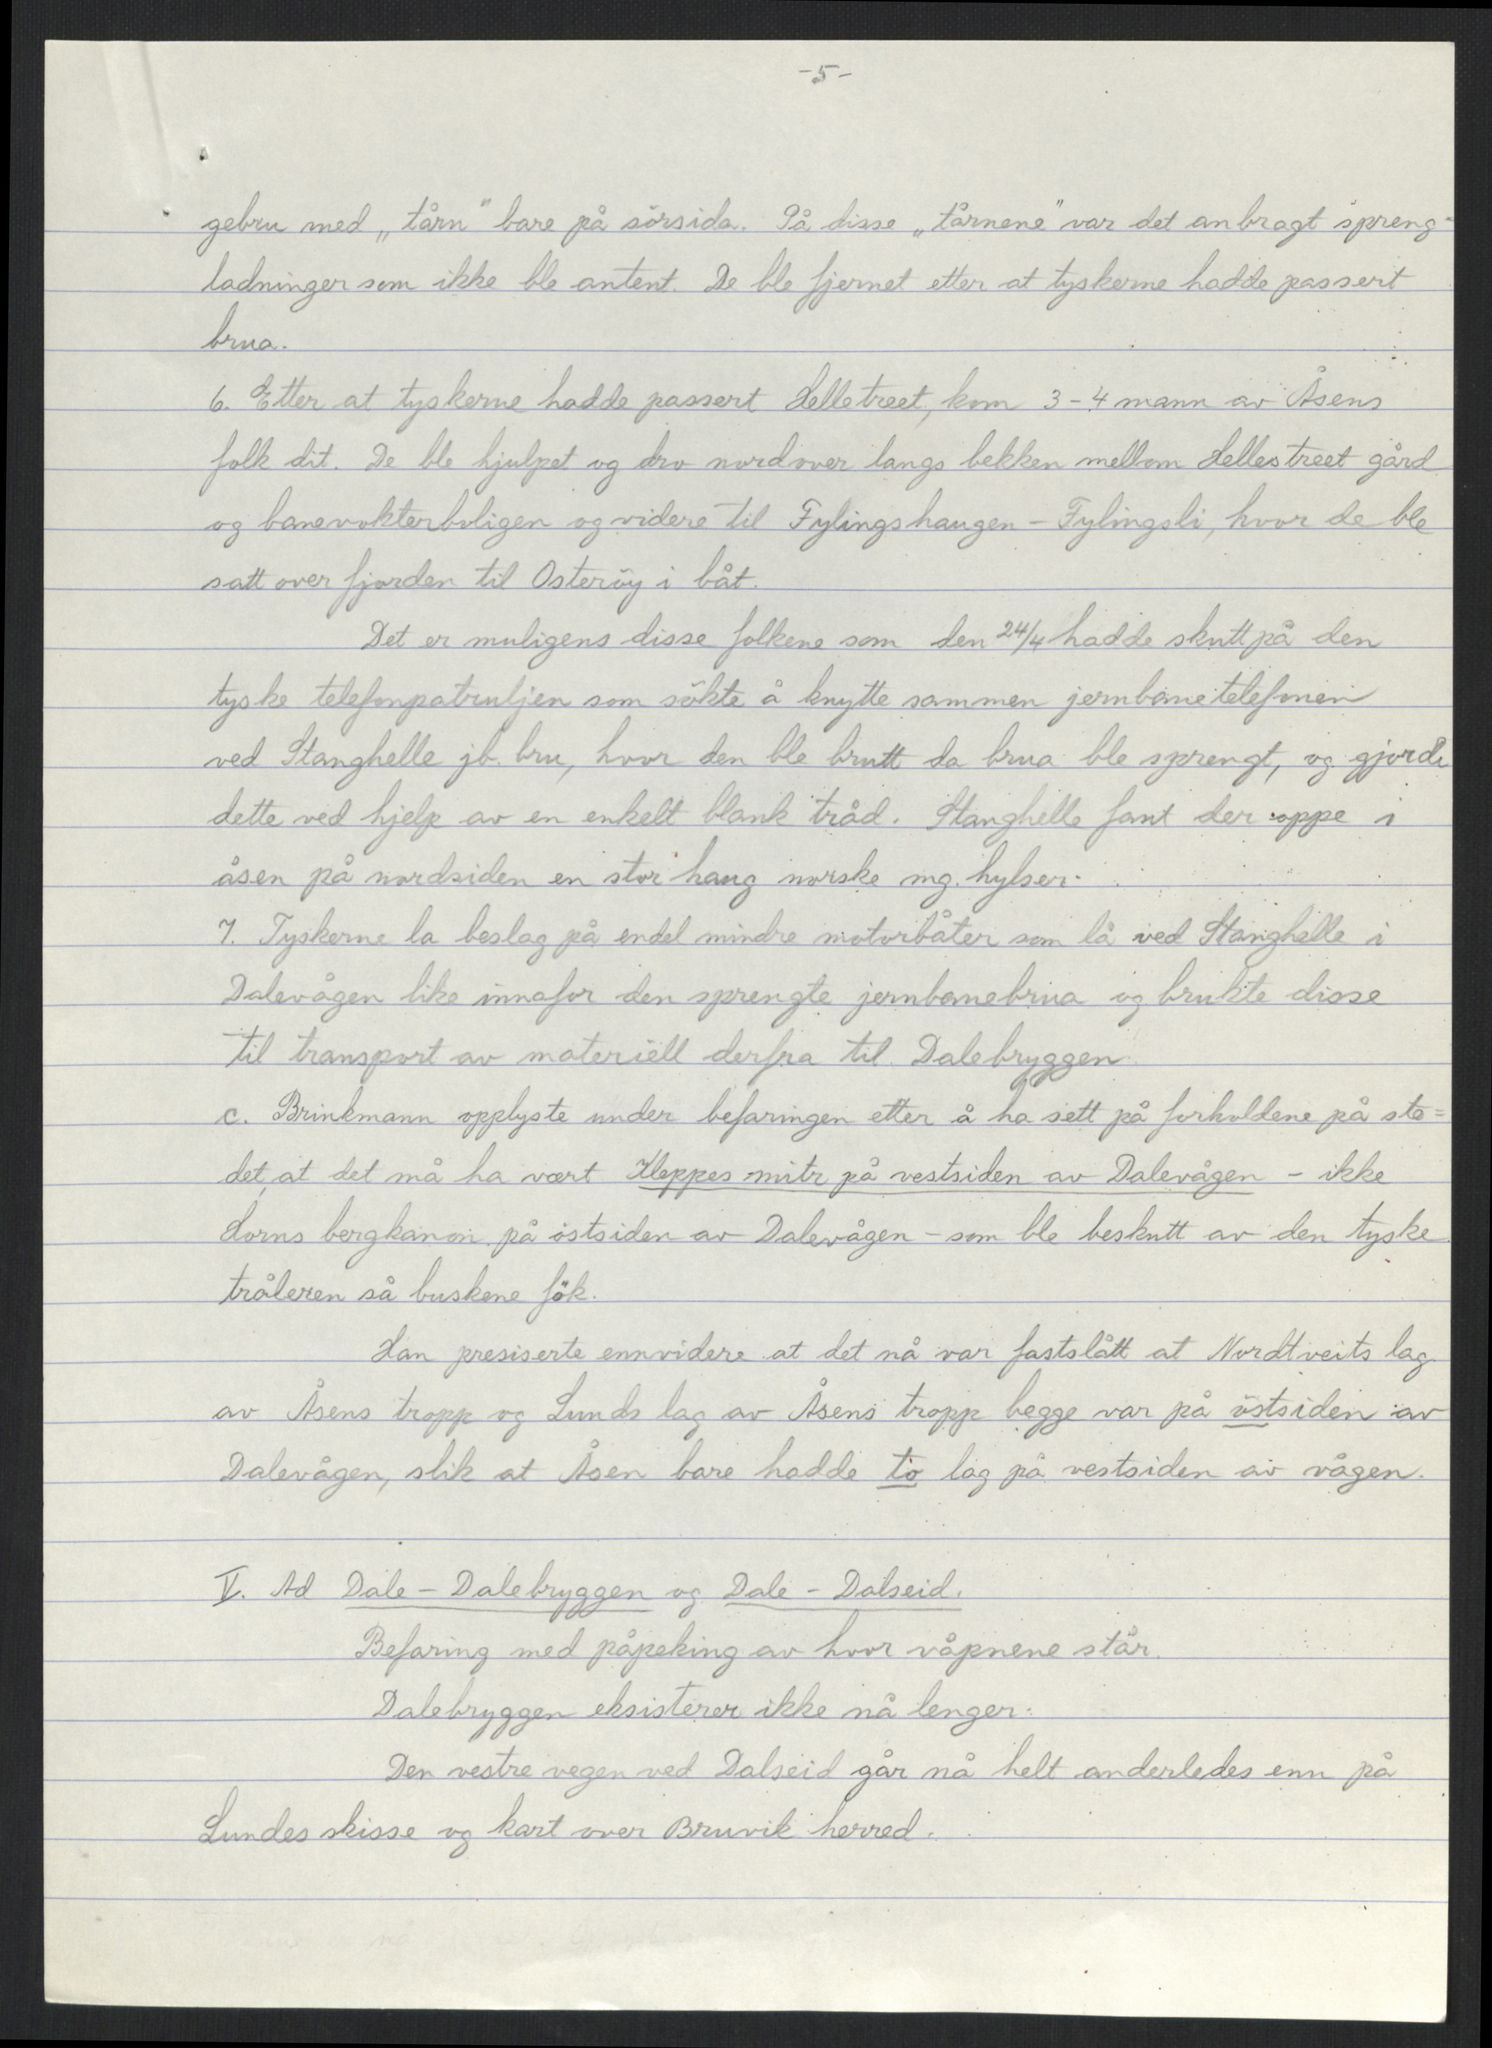 -5-
gebru med „tårn" bare på sörsida. På disse „tårnene" var det anbragt spreng=
ladninger som ikke ble antent. De ble fjernet etter at tyskerne hadde passert
brua.
6. Etter at tyskerne hadde passert Helletreet, kom 3-4 mann av Åsens
folk dit. De ble hjulpet og dro nordover langs bekken mellom Hellestreet gård
og banevokterboligen og videre til Fylingshaugen - Fylingsli, hvor de ble
satt over fjorden til Osteröy i båt.
Det er muligens disse folkene som den 24/4 hadde skutt på den
tyske telefonpatruljen som sökte å knytte sammen jernbanetelefonen
ved Stanghelle jb. bru, hvor den ble brutt da brua ble sprengt, og gjorde
dette ved hjelp av en enkelt blank tråd. Stanghelle fant der oppe i
åsen på nordsiden en stor haug norske mg. hylser.
7. Tyskerne la beslag på endel mindre motorbåter som lå ved Stanghelle i
Dalevågen like innafor den sprengte jernbanebrua og brukte disse
til transport av materiell derfra til Dalebryggen.
c. Brinkmann opplyste under befaringen etter å ha sett på forholdene på ste=
det, at det må ha vært Kleppes mitr på vestsiden av Dalevågen - ikke
Horns bergkanon på östsiden av Dalevågen - som ble beskutt av den tyske
tråleren så buskene fök.
Han presiserte ennvidere at det nå var fastslått at Nordtveits lag
av Åsens tropp og Lunds lag av Åsens tropp begge var på östsiden av
Dalevågen, slik at Åsen bare hadde to lag på vestsiden av vågen.
V. Ad Dale - Dalebryggen og Dale - Dalseid.
Befaring med påpeking av hvor våpnene står.
Dalebryggen eksisterer ikke nå lenger.
Den vestre vegen ved Dalseid går nå helt anderledes enn på
Lundes skisse og kart over Bruvik herred.